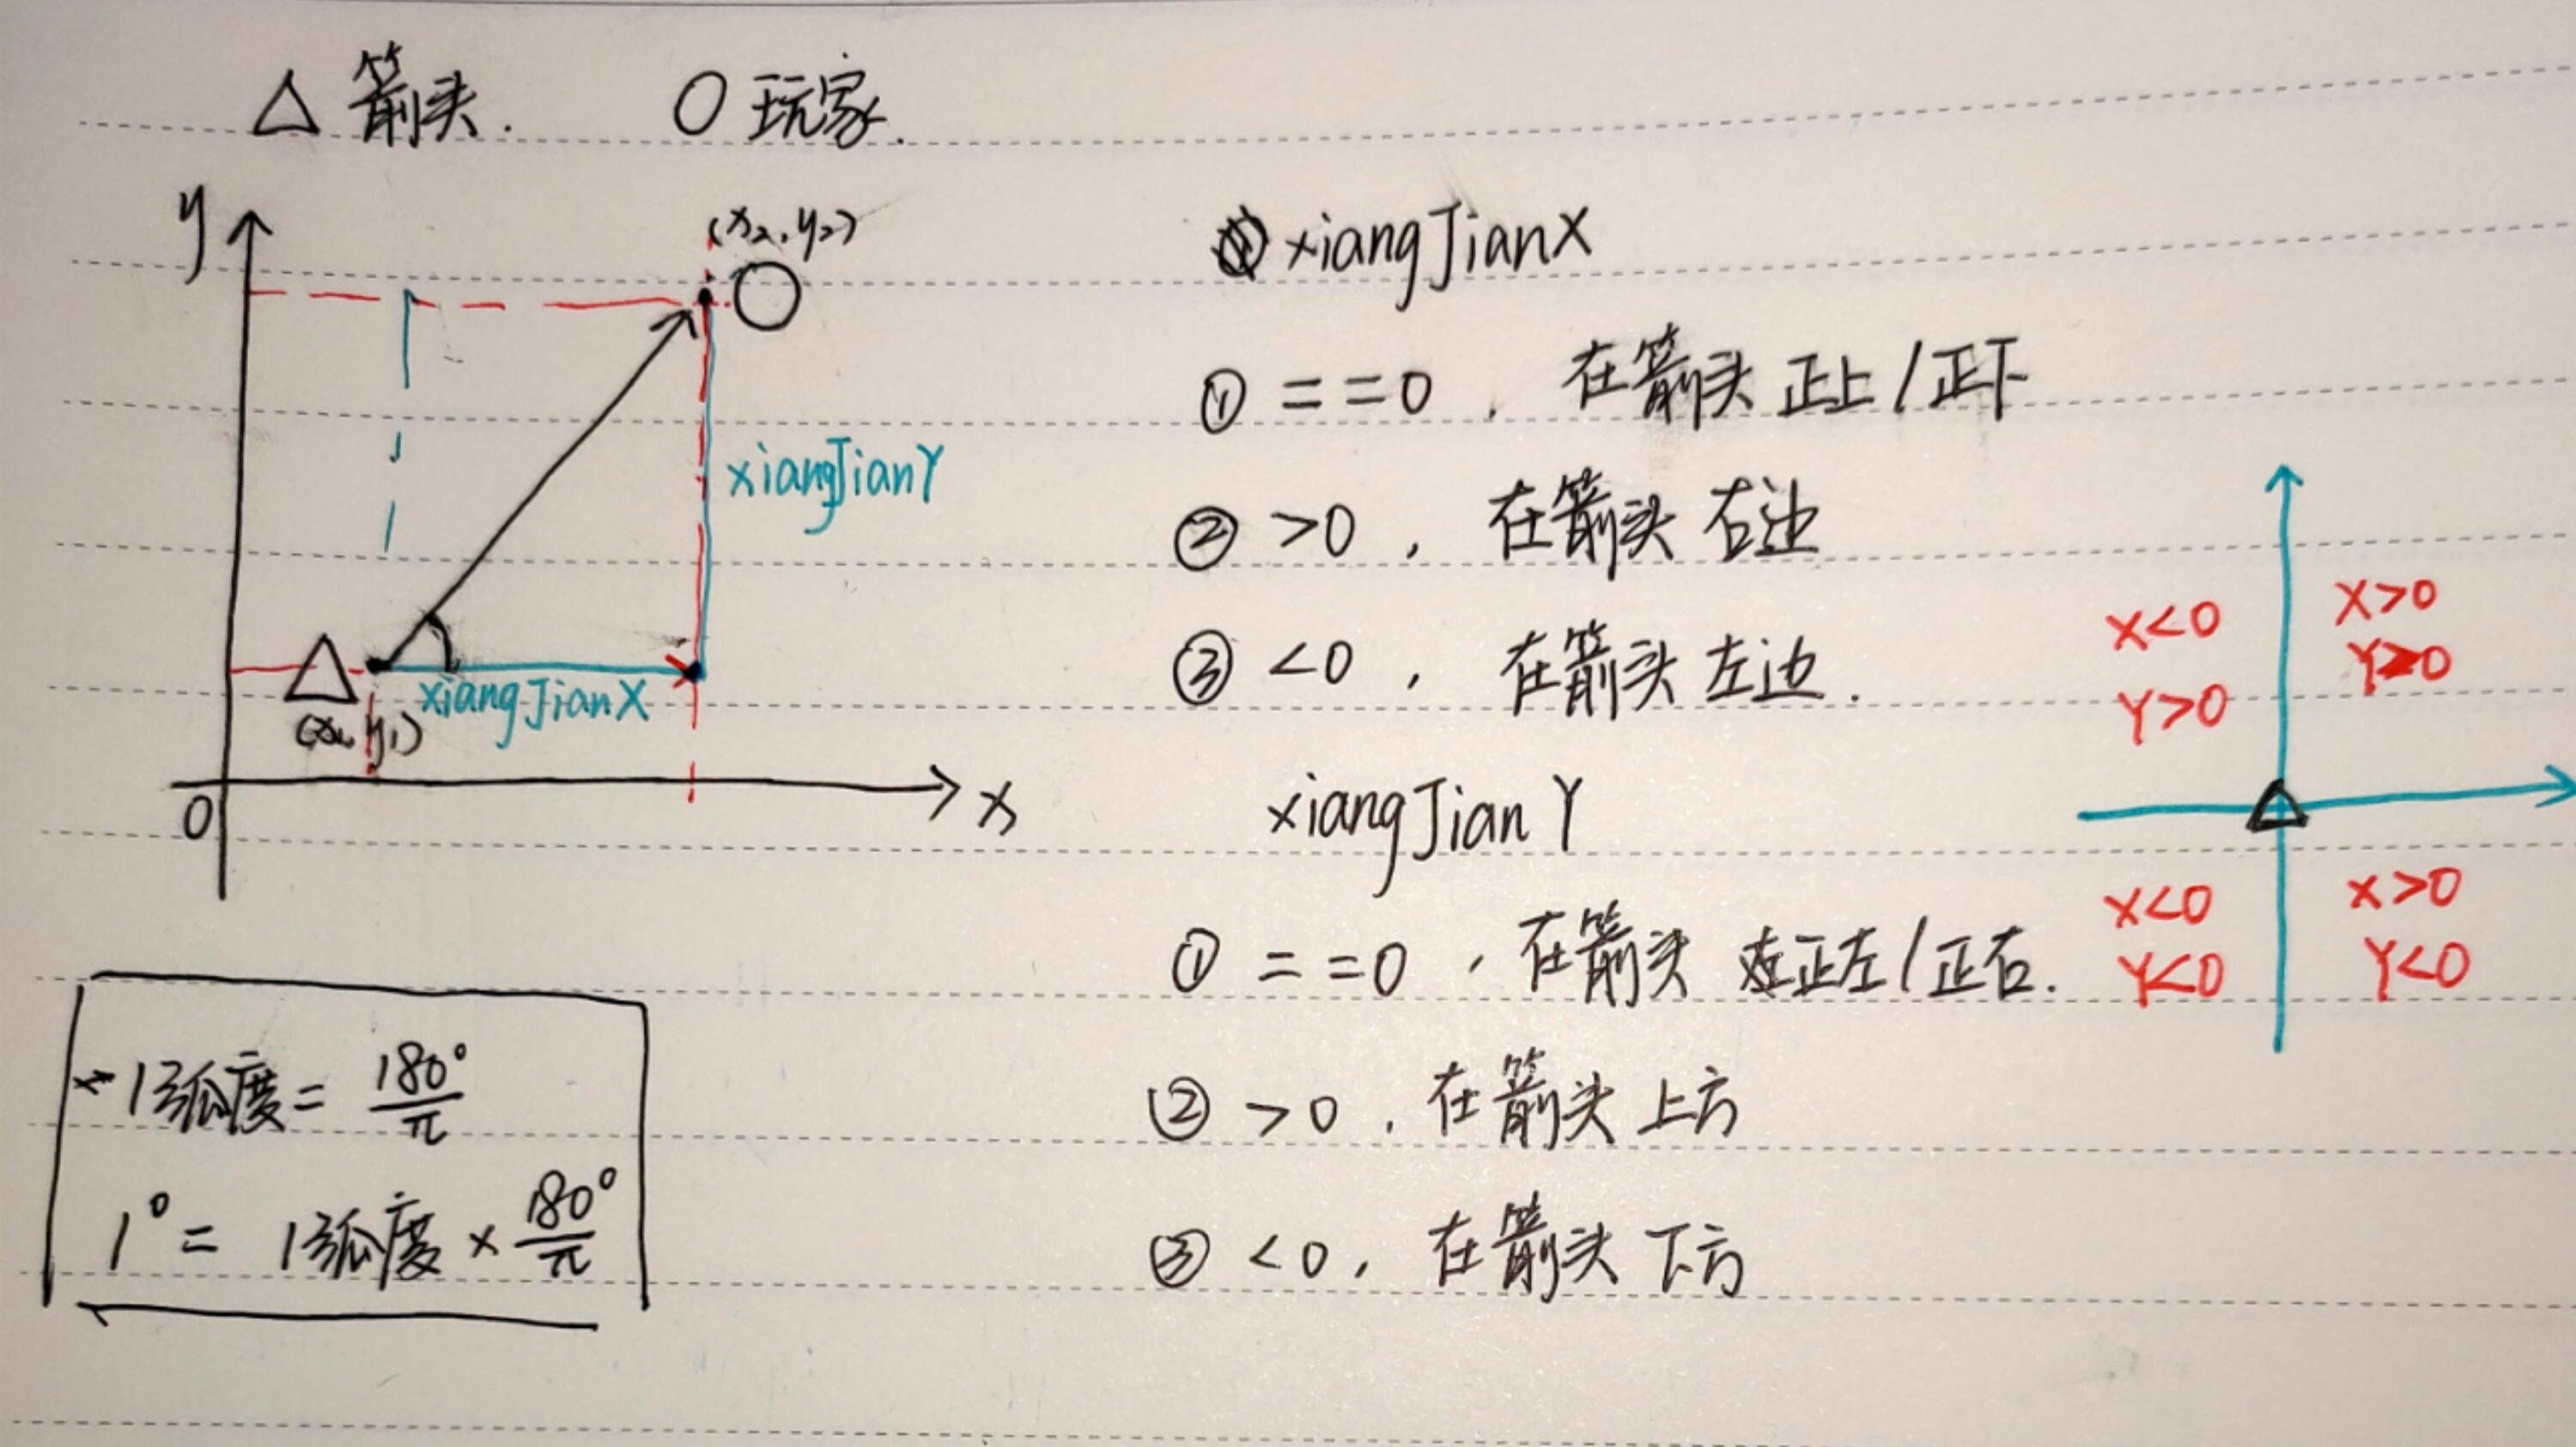 △ 箭头. ○ 玩家.
y
(x₂,y₂)
xiangJianY
xiangJianX
(x₁,y₁)
0
x
xiangJianX
① ==0, 在箭头 正上/正下
② >0, 在箭头 右边
③ <0, 在箭头 左边.
xiangJianY
① ==0, 在箭头 正左/正右.
② >0. 在箭头 上方
③ <0, 在箭头 下方
X<0
Y>0
X>0
Y>0
X<0
Y<0
X>0
Y<0
1弧度= 180°/π
1°= 1弧度 × 180°/π